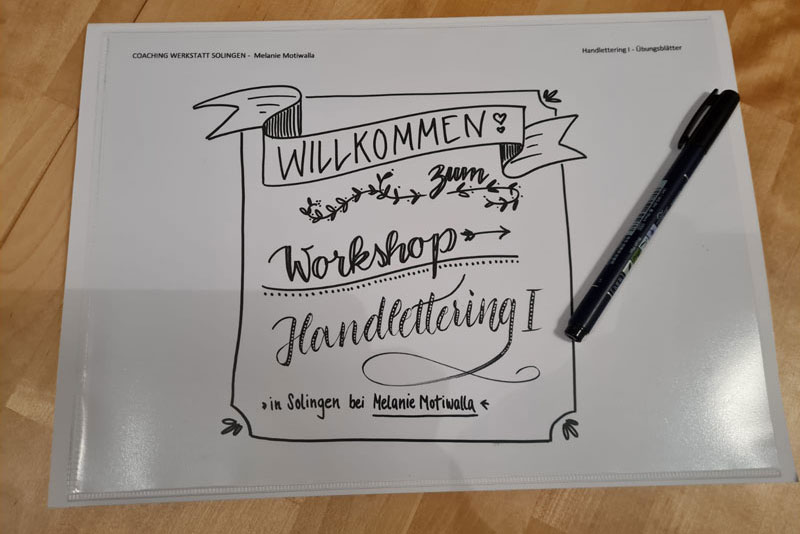 COACHING WERKSTATT SOLINGEN - Melanie Motiwalla
Handlettering I - Übungsblätter
WILLKOMMEN
zum
Workshop
Handlettering I
in Solingen bei Melanie Motiwalla